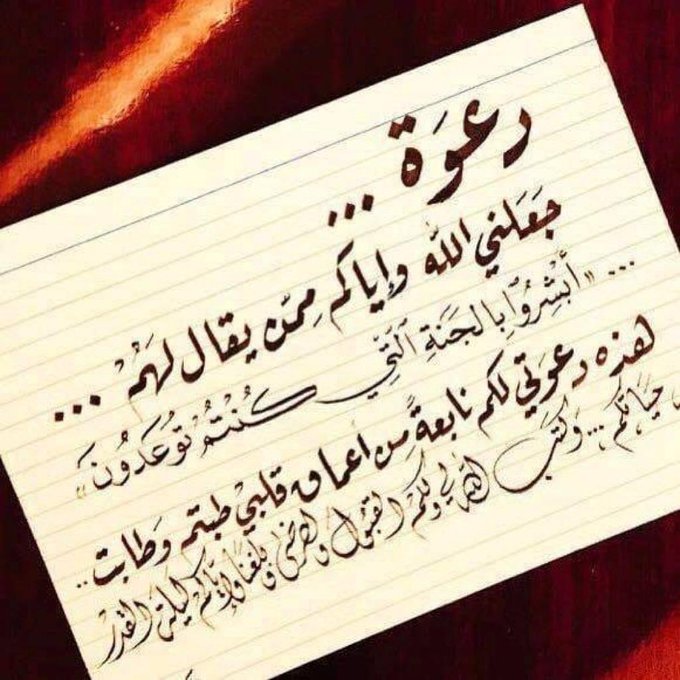 دعوَة ...
جَعَلني الله وإياكم مِمّن يقال لهَمُ ...
... «أَبْشِرُوا بِالجَنَةِ ٱلَتِّي كُنْتُمْ تُوعَدُونَ»
هذه دعوَتي لكم نابعةً مِن أعماق قلبيْ طبتم وَطابت ..
حيَاتكم ... وَكتبَ الله لي ولكم القبُول والرضى وبلغنَا وإيّاكم ليلة القدْر